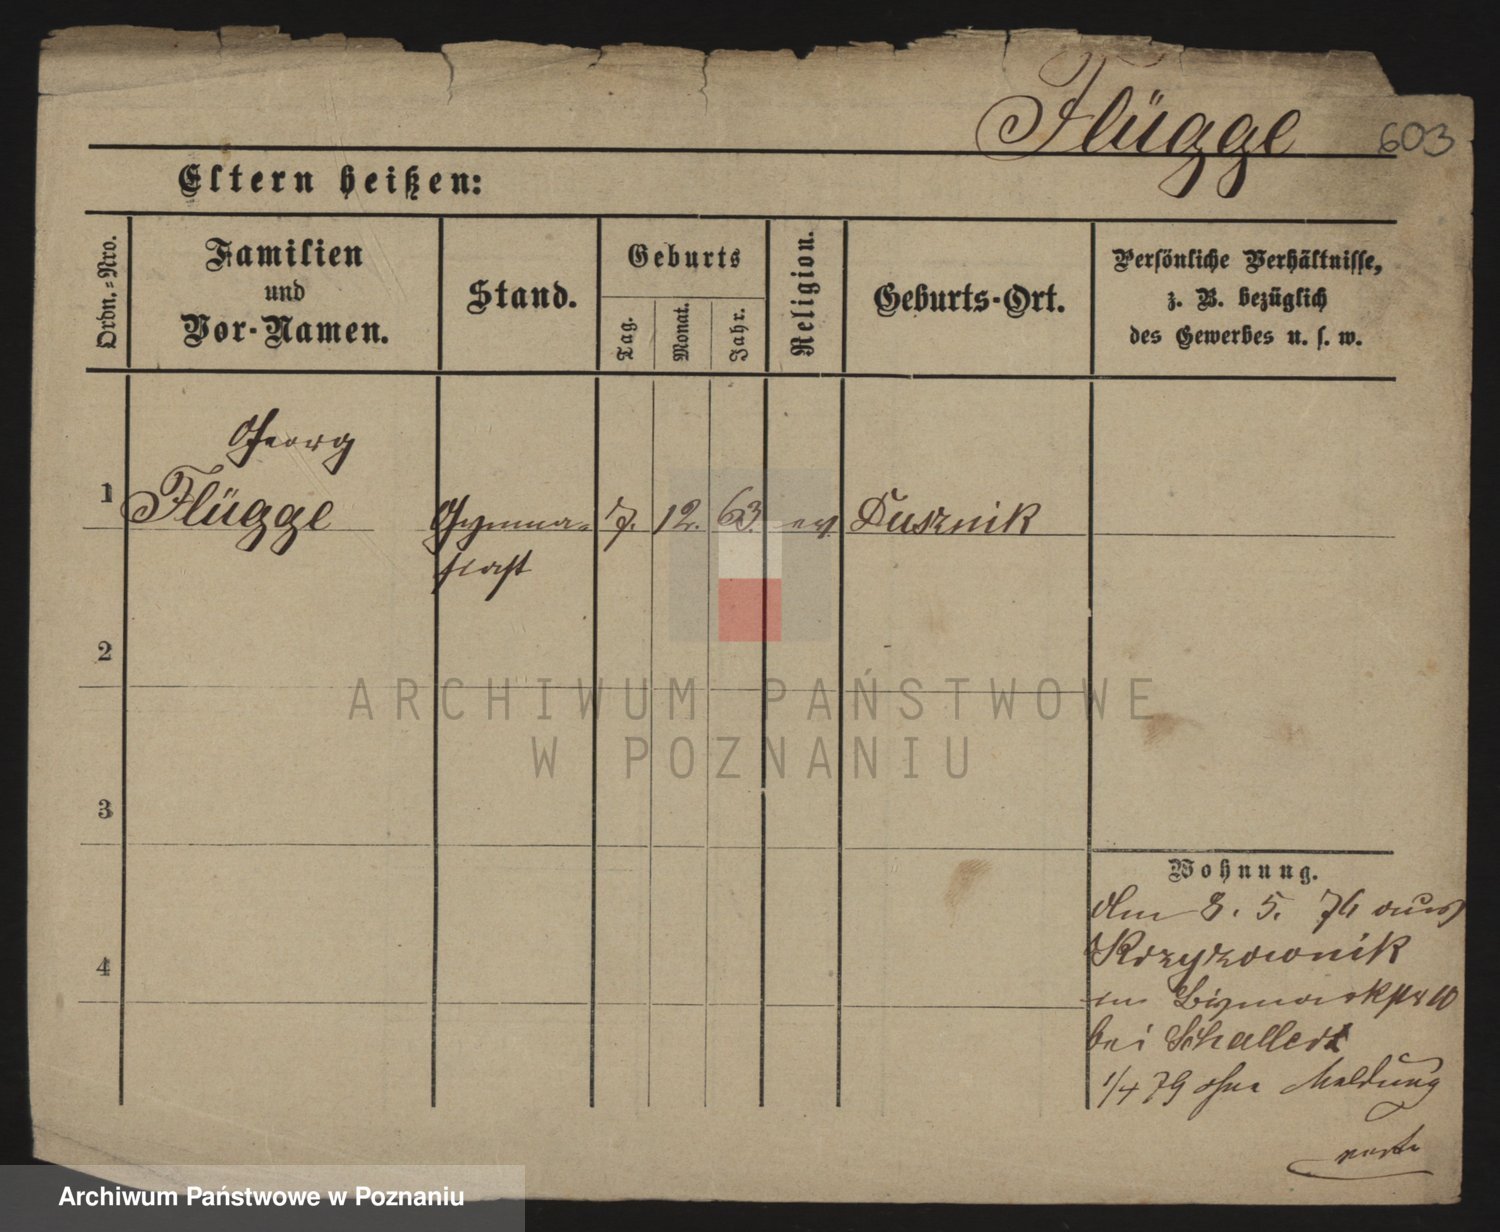 Flügge
603
Eltern heißen:
Ordn.-Nro.
Familien
und
Vor-Namen.
Stand.
Geburts
Tag.
Monat.
Jahr.
Religion.
Geburts-Ort.
Persönliche Verhältnisse,
z. B. bezüglich
des Gewerbes u. s. w.
Georg
1 Flügge Gymna- 7. 12. 63. ev Dusznik
siast
2
3
4
Wohnung.
den 8. 5. 76 aus
Krzyzownik
in Bismarkstr 10
bei Schallert
1/4 79 ohne Meldung
verte
ARCHIWUM PAŃSTWOWE
W POZNANIU
Archiwum Państwowe w Poznaniu